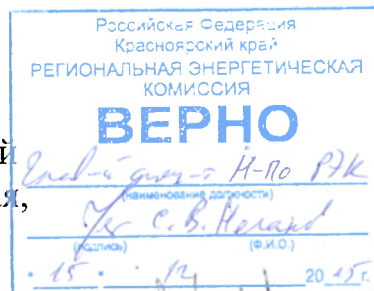 Российская Федерация
Красноярский край
РЕГИОНАЛЬНАЯ ЭНЕРГЕТИЧЕСКАЯ
КОМИССИЯ
ВЕРНО
РЭК
(наименование должности)
С. В.
(подпись) (Ф.И.О.)
" 15 " 12 20 15 г.